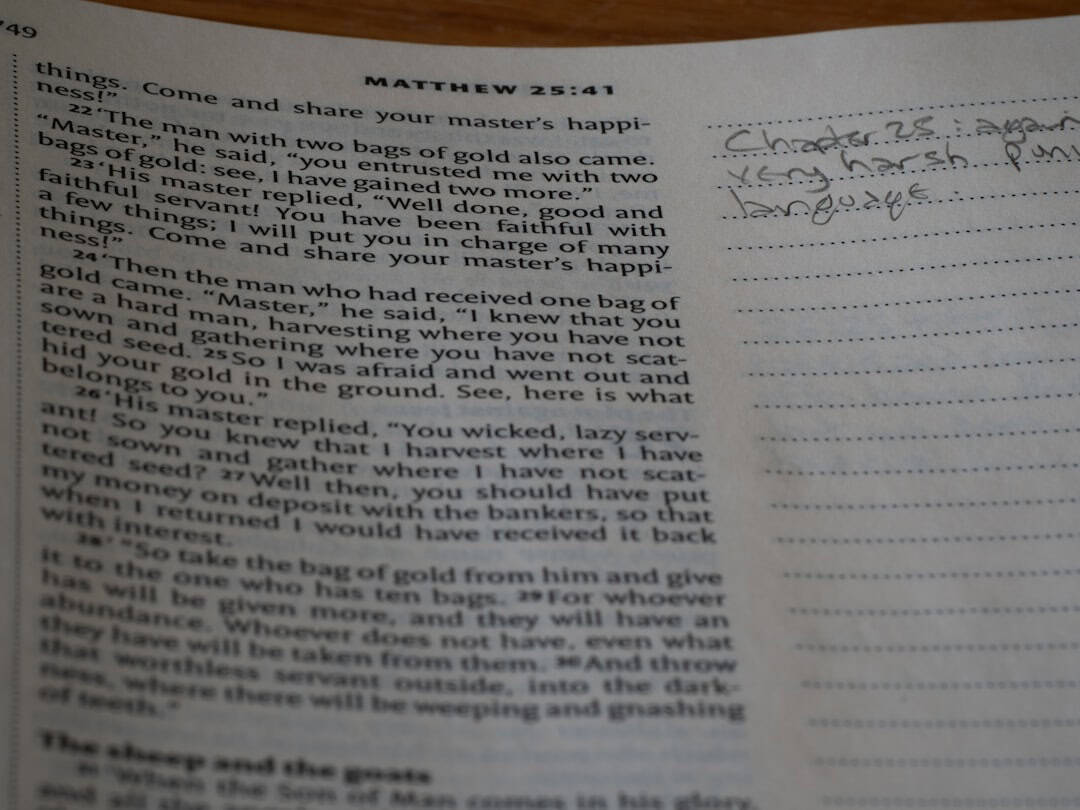 749
MATTHEW 25:41
things. Come and share your master's happi-
ness!"
22 'The man with two bags of gold also came.
"Master," he said, "you entrusted me with two
bags of gold: see, I have gained two more."
23 'His master replied, "Well done, good and
faithful servant! You have been faithful with
a few things; I will put you in charge of many
things. Come and share your master's happi-
ness!"
24 'Then the man who had received one bag of
gold came. "Master," he said, "I knew that you
are a hard man, harvesting where you have not
sown and gathering where you have not scat-
tered seed. 25 So I was afraid and went out and
hid your gold in the ground. See, here is what
belongs to you."
26 'His master replied, "You wicked, lazy serv-
ant! So you knew that I harvest where I have
not sown and gather where I have not scat-
tered seed? 27 Well then, you should have put
my money on deposit with the bankers, so that
when I returned I would have received it back
with interest.
28 ' "So take the bag of gold from him and give
it to the one who has ten bags. 29 For whoever
has will be given more, and they will have an
abundance. Whoever does not have, even what
they have will be taken from them. 30 And throw
that worthless servant outside, into the dark-
ness, where there will be weeping and gnashing
of teeth."
The sheep and the goats
31 'When the Son of Man comes in his glory,
and all the
Chapter 25: again
very harsh puni
language.